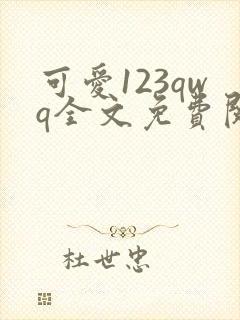 可愛123qw
q全文免費閱
杜世忠